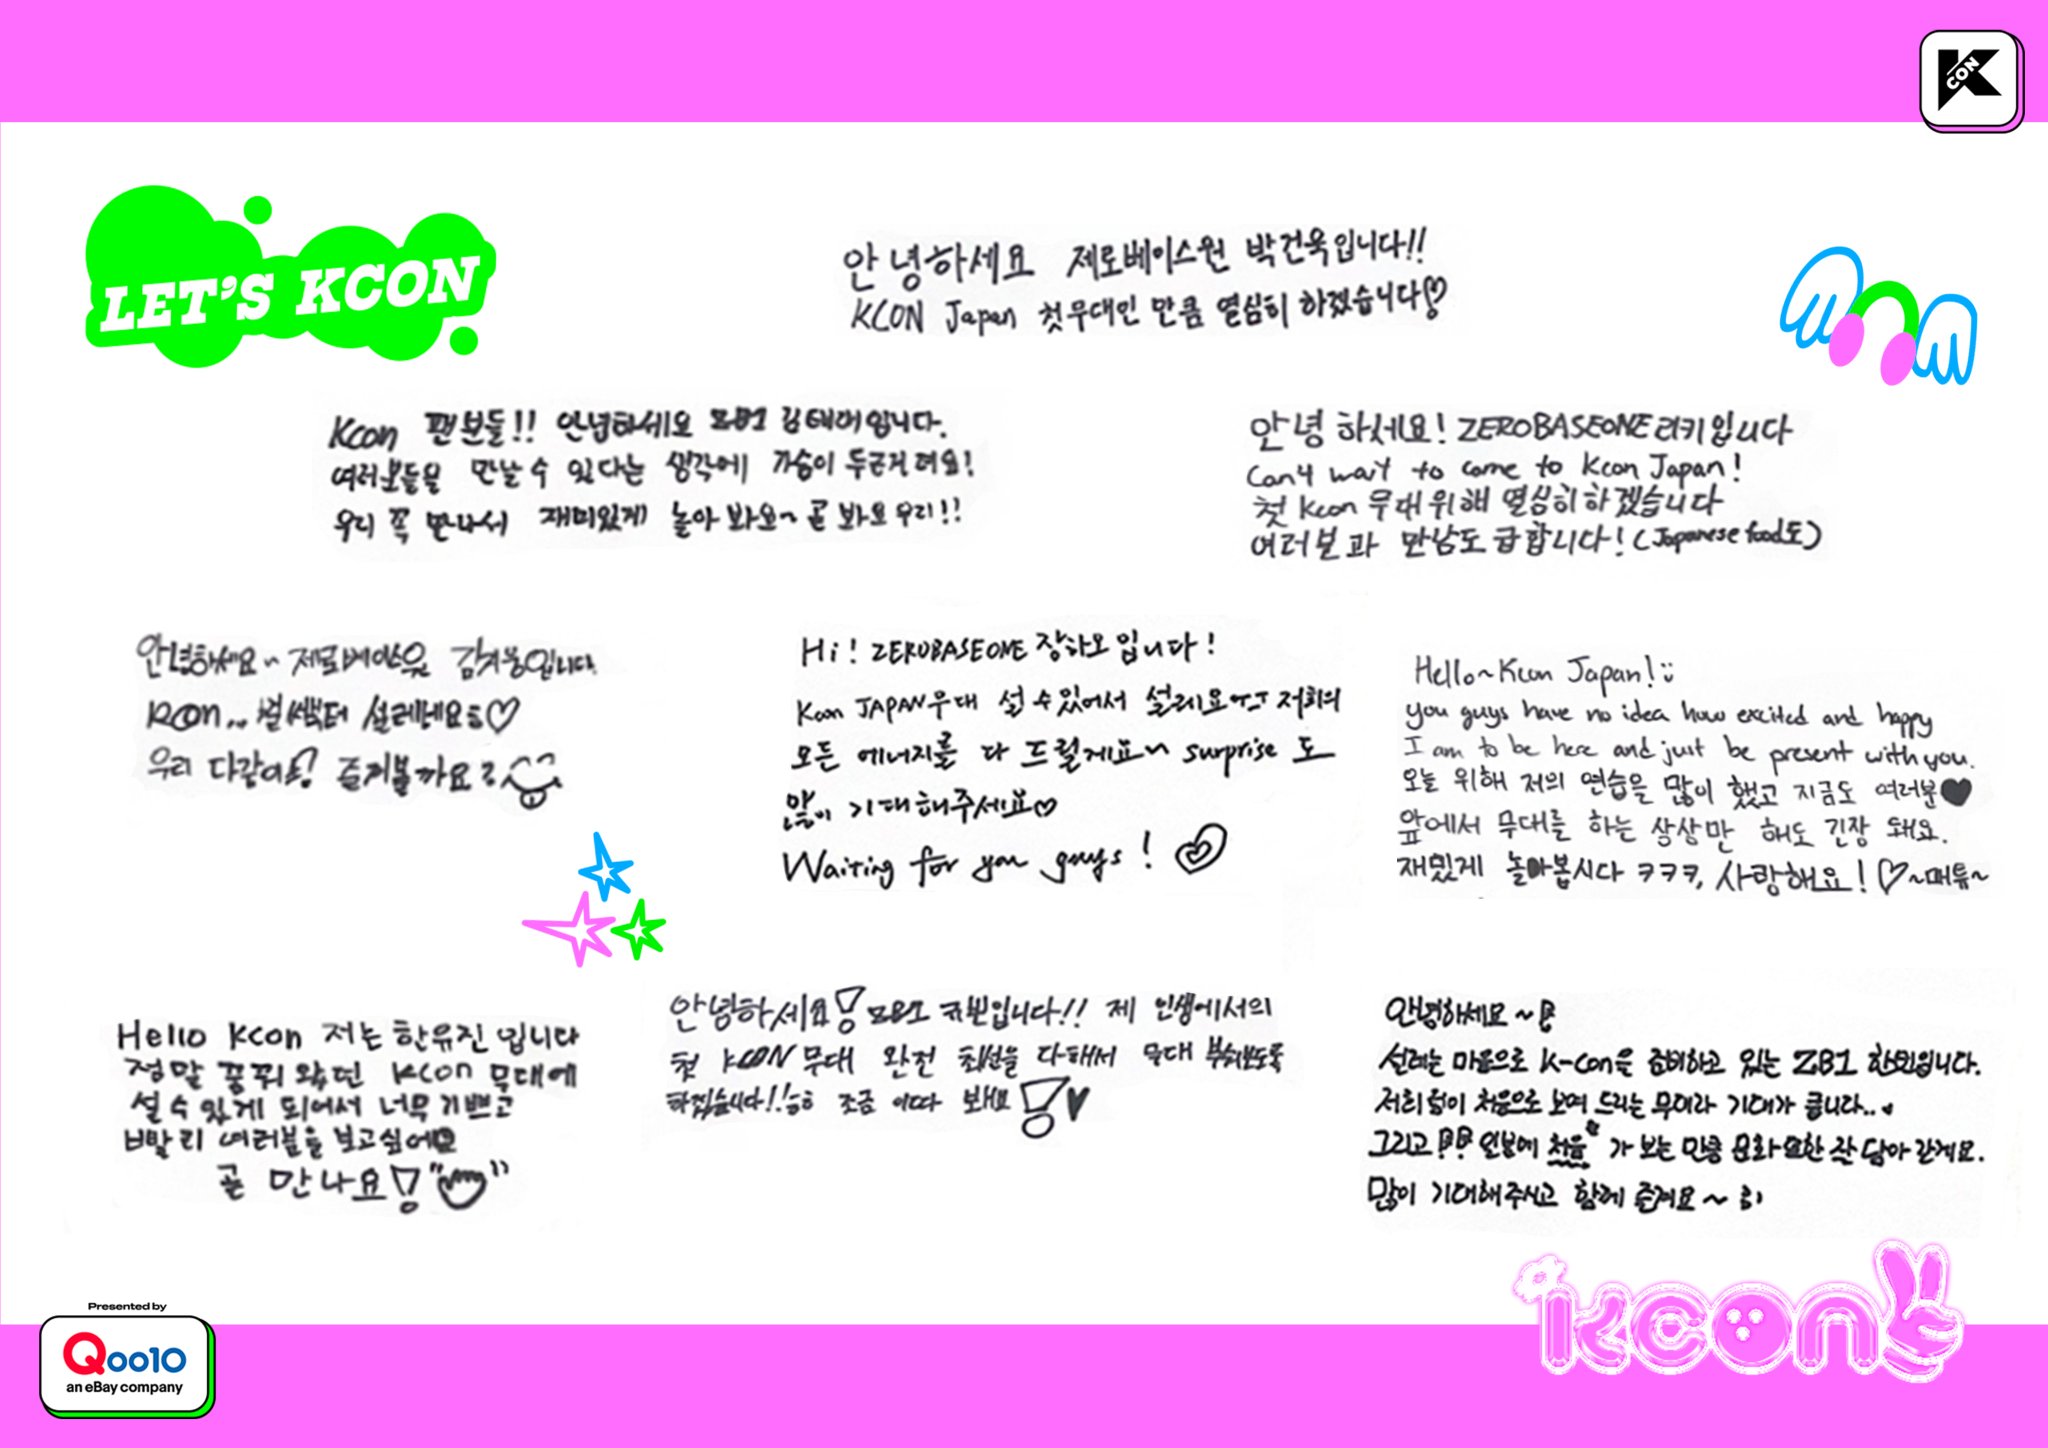 K
CON
LET'S KCON
안녕하세요 제로베이스원 박건욱입니다!!
KCON Japan 첫무대인 만큼 열심히 하겠습니다♡
Kcon 팬분들!! 안녕하세요 ZB1 김태래입니다.
여러분들을 만날 수 있다는 생각에 가슴이 두근거려요!
우리 꼭 만나서 재미있게 놀아 봐요~ 곧 봐요 우리!!
안녕하세요! ZEROBASEONE 리키입니다
Can't wait to come to Kcon Japan!
첫 Kcon 무대 위해 열심히 하겠습니다
여러분과 만남도 급합니다! (Japanese food도)
안녕하세요~ 제로베이스원 김지웅입니다.
KCON... 벌써부터 설레네요ㅎ♡
우리 다같이 즐겨볼까요?
Hi! ZEROBASEONE 장하오입니다!
Kcon JAPAN무대 설 수있어서 설레요 저희의
모든 에너지를 다 드릴게요~ surprise 도
많이 기대해주세요♡
Waiting for you guys! ♡
Hello~Kcon Japan! :)
you guys have no idea how excited and happy
I am to be here and just be present with you.
오늘 위해 저의 연습을 많이 했고 지금도 여러분♥
앞에서 무대를 하는 상상만 해도 긴장 돼요.
재밌게 놀아봅시다 ㅋㅋㅋ, 사랑해요! ♡~매튜~
Hello Kcon 저는 한유진입니다
정말 꿈꿔 왔던 Kcon 무대에
설 수 있게 되어서 너무 기쁘고
빨리 여러분을 보고싶어요
곧 만나요!
안녕하세요! ZB1 규빈입니다!! 제 인생에서의
첫 KCON 무대 완전 최선을 다해서 무대 부숴보도록
하겠습니다!! 조금 이따 봐요! ♥
안녕하세요~
설레는 마음으로 K-con을 준비하고 있는 ZB1 한빈입니다.
저희 팀이 처음으로 보여 드리는 무대라 기대가 큽니다..
그리고 일본에 처음 가 보는 만큼 문화 또한 잔뜩 담아 갈게요.
많이 기대해주시고 함께 즐겨요~ :)
Presented by
Qoo10
an eBay company
KCON